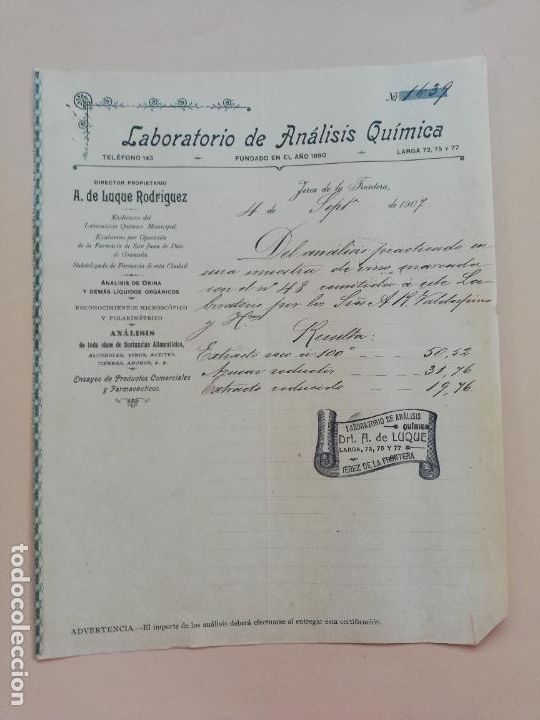 № 1639
Laboratorio de Análisis Química
TELÉFONO 143 FUNDADO EN EL AÑO 1890 LARGA 73, 75 Y 77
DIRECTOR PROPIETARIO
A. de Luque Rodríguez
Ex-director del
Laboratorio Químico Municipal.
Ex-alumno por Oposición
de la Farmacia de San Juan de Dios
de Granada.
Subdelegado de Farmacia de esta Ciudad.
ANÁLISIS DE ORINA
Y DEMÁS LÍQUIDOS ORGÁNICOS
RECONOCIMIENTOS MICROSCÓPICO
Y POLARIMÉTRICO
ANÁLISIS
de toda clase de Substancias Alimenticias,
ALCOHOLES, VINOS, ACEITES,
TIERRAS, ABONOS, &. &.
Ensayos de Productos Comerciales
y Farmacéuticos.
Jerez de la Frontera,
4 de Septe de 1907
Del análisis practicado en
una muestra de vino marcada
con el nº 48 remitida á este La-
boratorio por los Sres A. R. Valdespino
y Hno
Resulta:
Extracto seco a 100° 50,52
Azúcar reductor 31,76
Extracto reducido 19,76
LABORATORIO DE ANÁLISIS
QUÍMICA
Drt. A. de LUQUE
LARGA, 73, 75 Y 77
JEREZ DE LA FRONTERA
ADVERTENCIA.—El importe de los análisis deberá efectuarse al entregar esta certificación.
todocoleccion.net